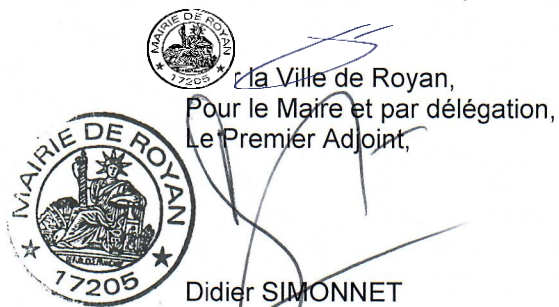 MAIRIE DE ROYAN
17205
r la Ville de Royan,
Pour le Maire et par délégation,
Le Premier Adjoint,
MAIRIE DE ROYAN
17205
Didier SIMONNET